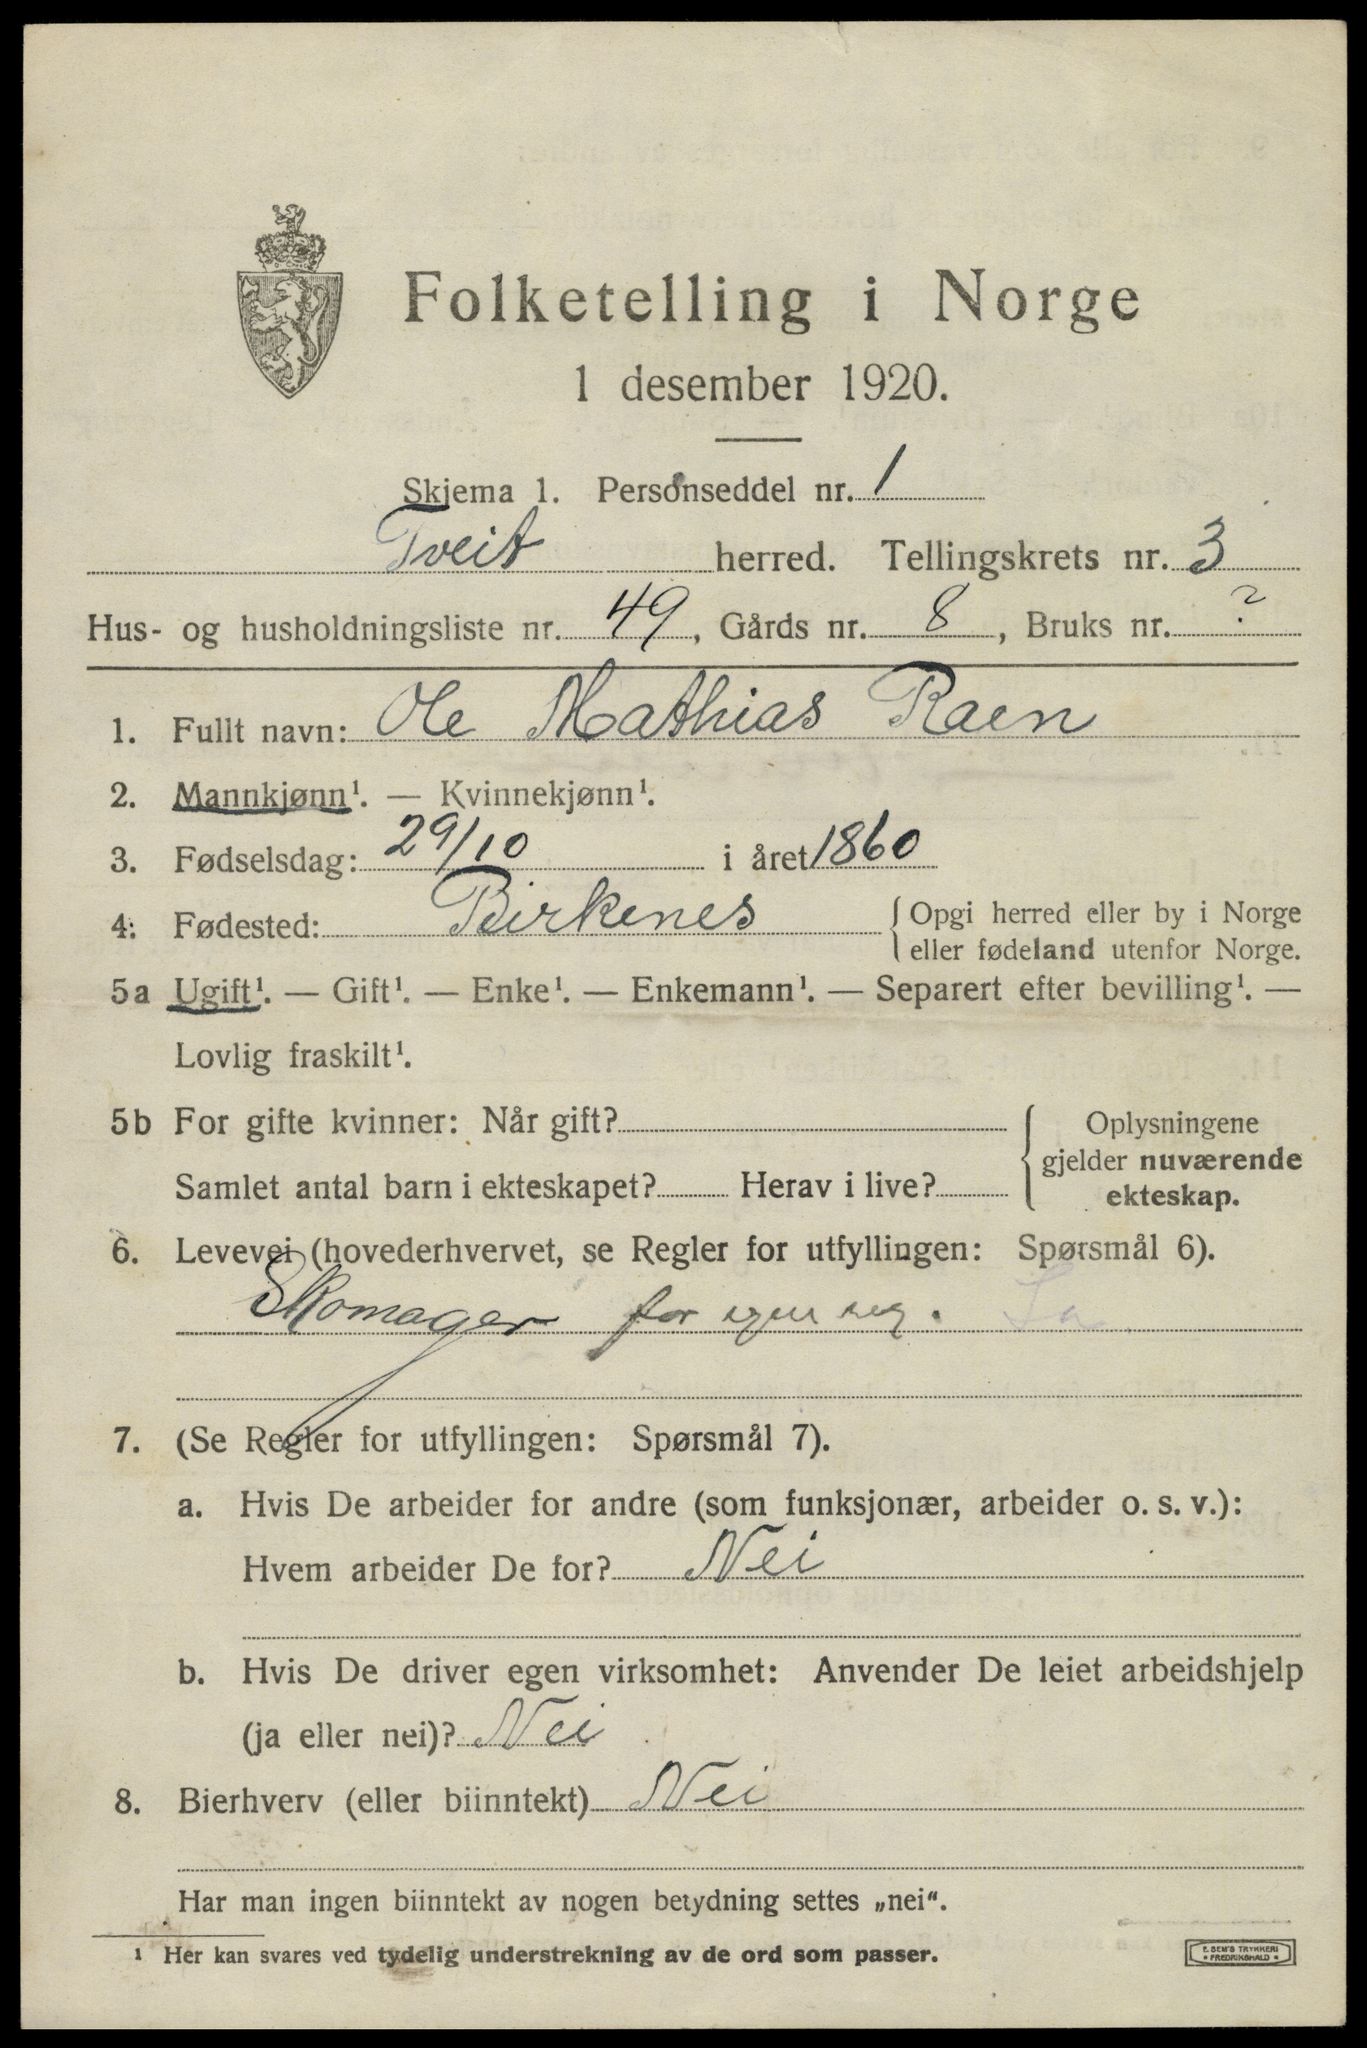 Folketelling i Norge
1 desember 1920.
Skjema 1. Personseddel nr. 1
Tveit herred. Tellingskrets nr. 3
Hus- og husholdningsliste nr. 49, Gårds nr. 8, Bruks nr. ?
1. Fullt navn: Ole Mathias Raen
2. Mannkjønn¹. — Kvinnekjønn¹.
3. Fødselsdag: 29/10 i året 1860
4. Fødested: Birkenes { Opgi herred eller by i Norge
eller fødeland utenfor Norge.
5a Ugift¹. — Gift¹. — Enke¹. — Enkemann¹. — Separert efter bevilling¹. —
Lovlig fraskilt¹.
5b For gifte kvinner: Når gift?
Samlet antal barn i ekteskapet? Herav i live?
Oplysningene
gjelder nuværende
ekteskap.
6. Levevei (hovederhvervet, se Regler for utfyllingen: Spørsmål 6).
Skomager for egen reg.
7. (Se Regler for utfyllingen: Spørsmål 7).
a. Hvis De arbeider for andre (som funksjonær, arbeider o. s. v.):
Hvem arbeider De for? Nei
b. Hvis De driver egen virksomhet: Anvender De leiet arbeidshjelp
(ja eller nei)? Nei
8. Bierhverv (eller biinntekt) Nei
Har man ingen biinntekt av nogen betydning settes „nei“.
¹ Her kan svares ved tydelig understrekning av de ord som passer.
E. SEM'S TRYKKERI
* FREDRIKSHALD *